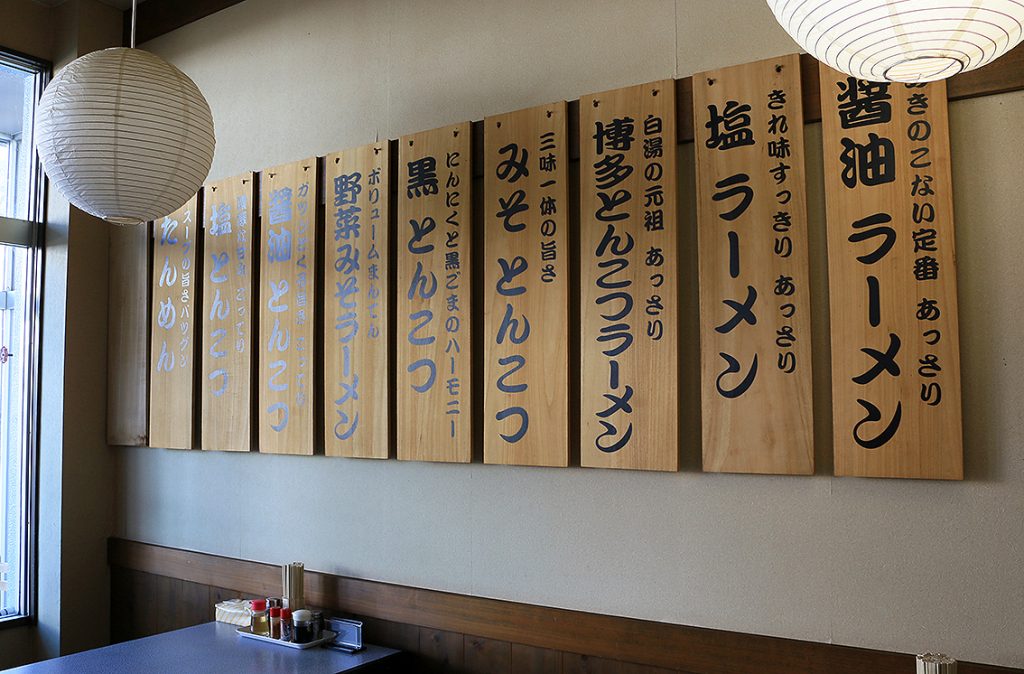 きのこない定番 あっさり
醤油 ラーメン
きれ味すっきり あっさり
塩 ラーメン
白湯の元祖 あっさり
博多とんこつラーメン
三味一体の旨さ
みそ とんこつ
にんにくと黒ごまのハーモニー
黒 とんこつ
ボリュームまんてん
野菜みそラーメン
醤油 とんこつ
塩 とんこつ
スープの旨さバツグン
たんめん